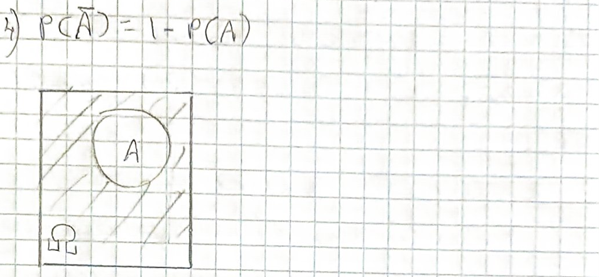 4) P(Ā) = 1 - P(A)
A
Ω